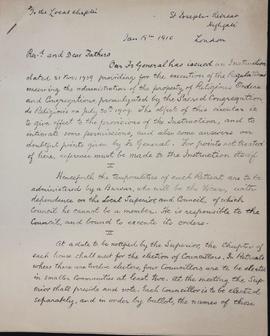 To the Local Chapter
St Joseph's Retreat
Highgate
London
Jan 19th 1910
Revd. and Dear Fathers
Our Fr General has issued an Instruction
dated 21 Nov. 1909 providing for the execution of the Regulations
concerning the administration of the property of Religious Orders
and Congregations promulgated by the Sacred Congregation
de Religiosis on July 30th 1909. The object of this circular is
to give effect to the provisions of the Instruction, and to
intimate some permissions, and also some answers on
doubtful points given by Fr General. For points not treated
of here, reference must be made to the Instruction itself.
Henceforth the temporalities of each Retreat are to be
administered by a Bursar, who will be the Vicar, with
dependence on the Local Superior and Council, of which
Council he cannot be a member. He is responsible to the
Council, and bound to execute its orders.
At a date to be notified by the Superior, the Chapter of
each house shall meet for the election of Councillors. In Retreats
where there are twelve electors, four Councillors are to be elected
in smaller communities at least two. At the meeting the Supe-
rior shall preside and vote. Each Councillor is to be elected
separately, and in order by ballot, the names of those